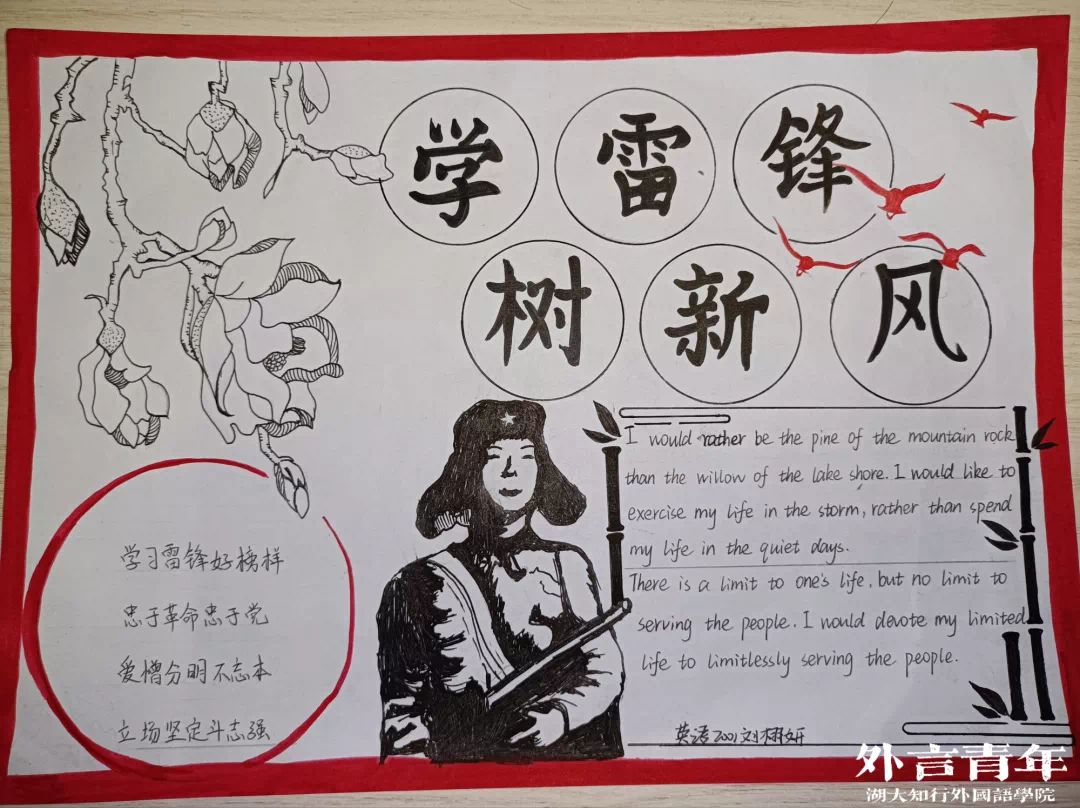 学雷锋
树新风
I would rather be the pine of the mountain rock
than the willow of the lake shore. I would like to
exercise my life in the storm, rather than spend
my life in the quiet days.
There is a limit to one's life, but no limit to
serving the people. I would devote my limited
life to limitlessly serving the people.
学习雷锋好榜样
忠于革命忠于党
爱憎分明不忘本
立场坚定斗志强
英语2001 刘栩妍
外言青年
湖大知行外國語學院